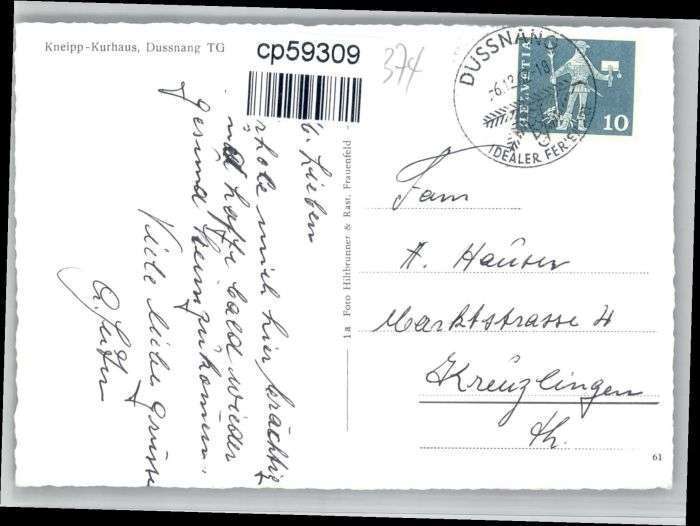 Kneipp-Kurhaus, Dussnang TG
cp59309
374
DUSSNANG
-6.12.
-18
IDEALER FER
HELVETIA
10
Lieben
erhole mich hier prächtig
und hoffe bald wieder
gesund heimzukommen.
Viele liebe Grüsse
1a Foto Hiltbrunner & Rast, Frauenfeld -
Fam
A. Hauser
Marktstrasse 4
Kreuzlingen
Th.
61